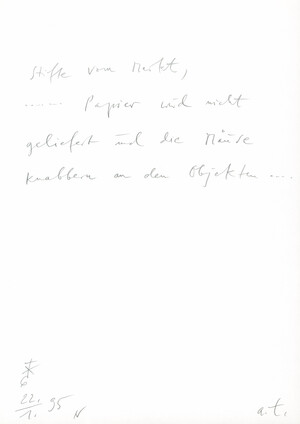 Stifte vom Markt,
...... Papier wird nicht
geliefert und die Mäuse
knabbern an den Objekten ....
6
22.
1. 95 N
a.t.